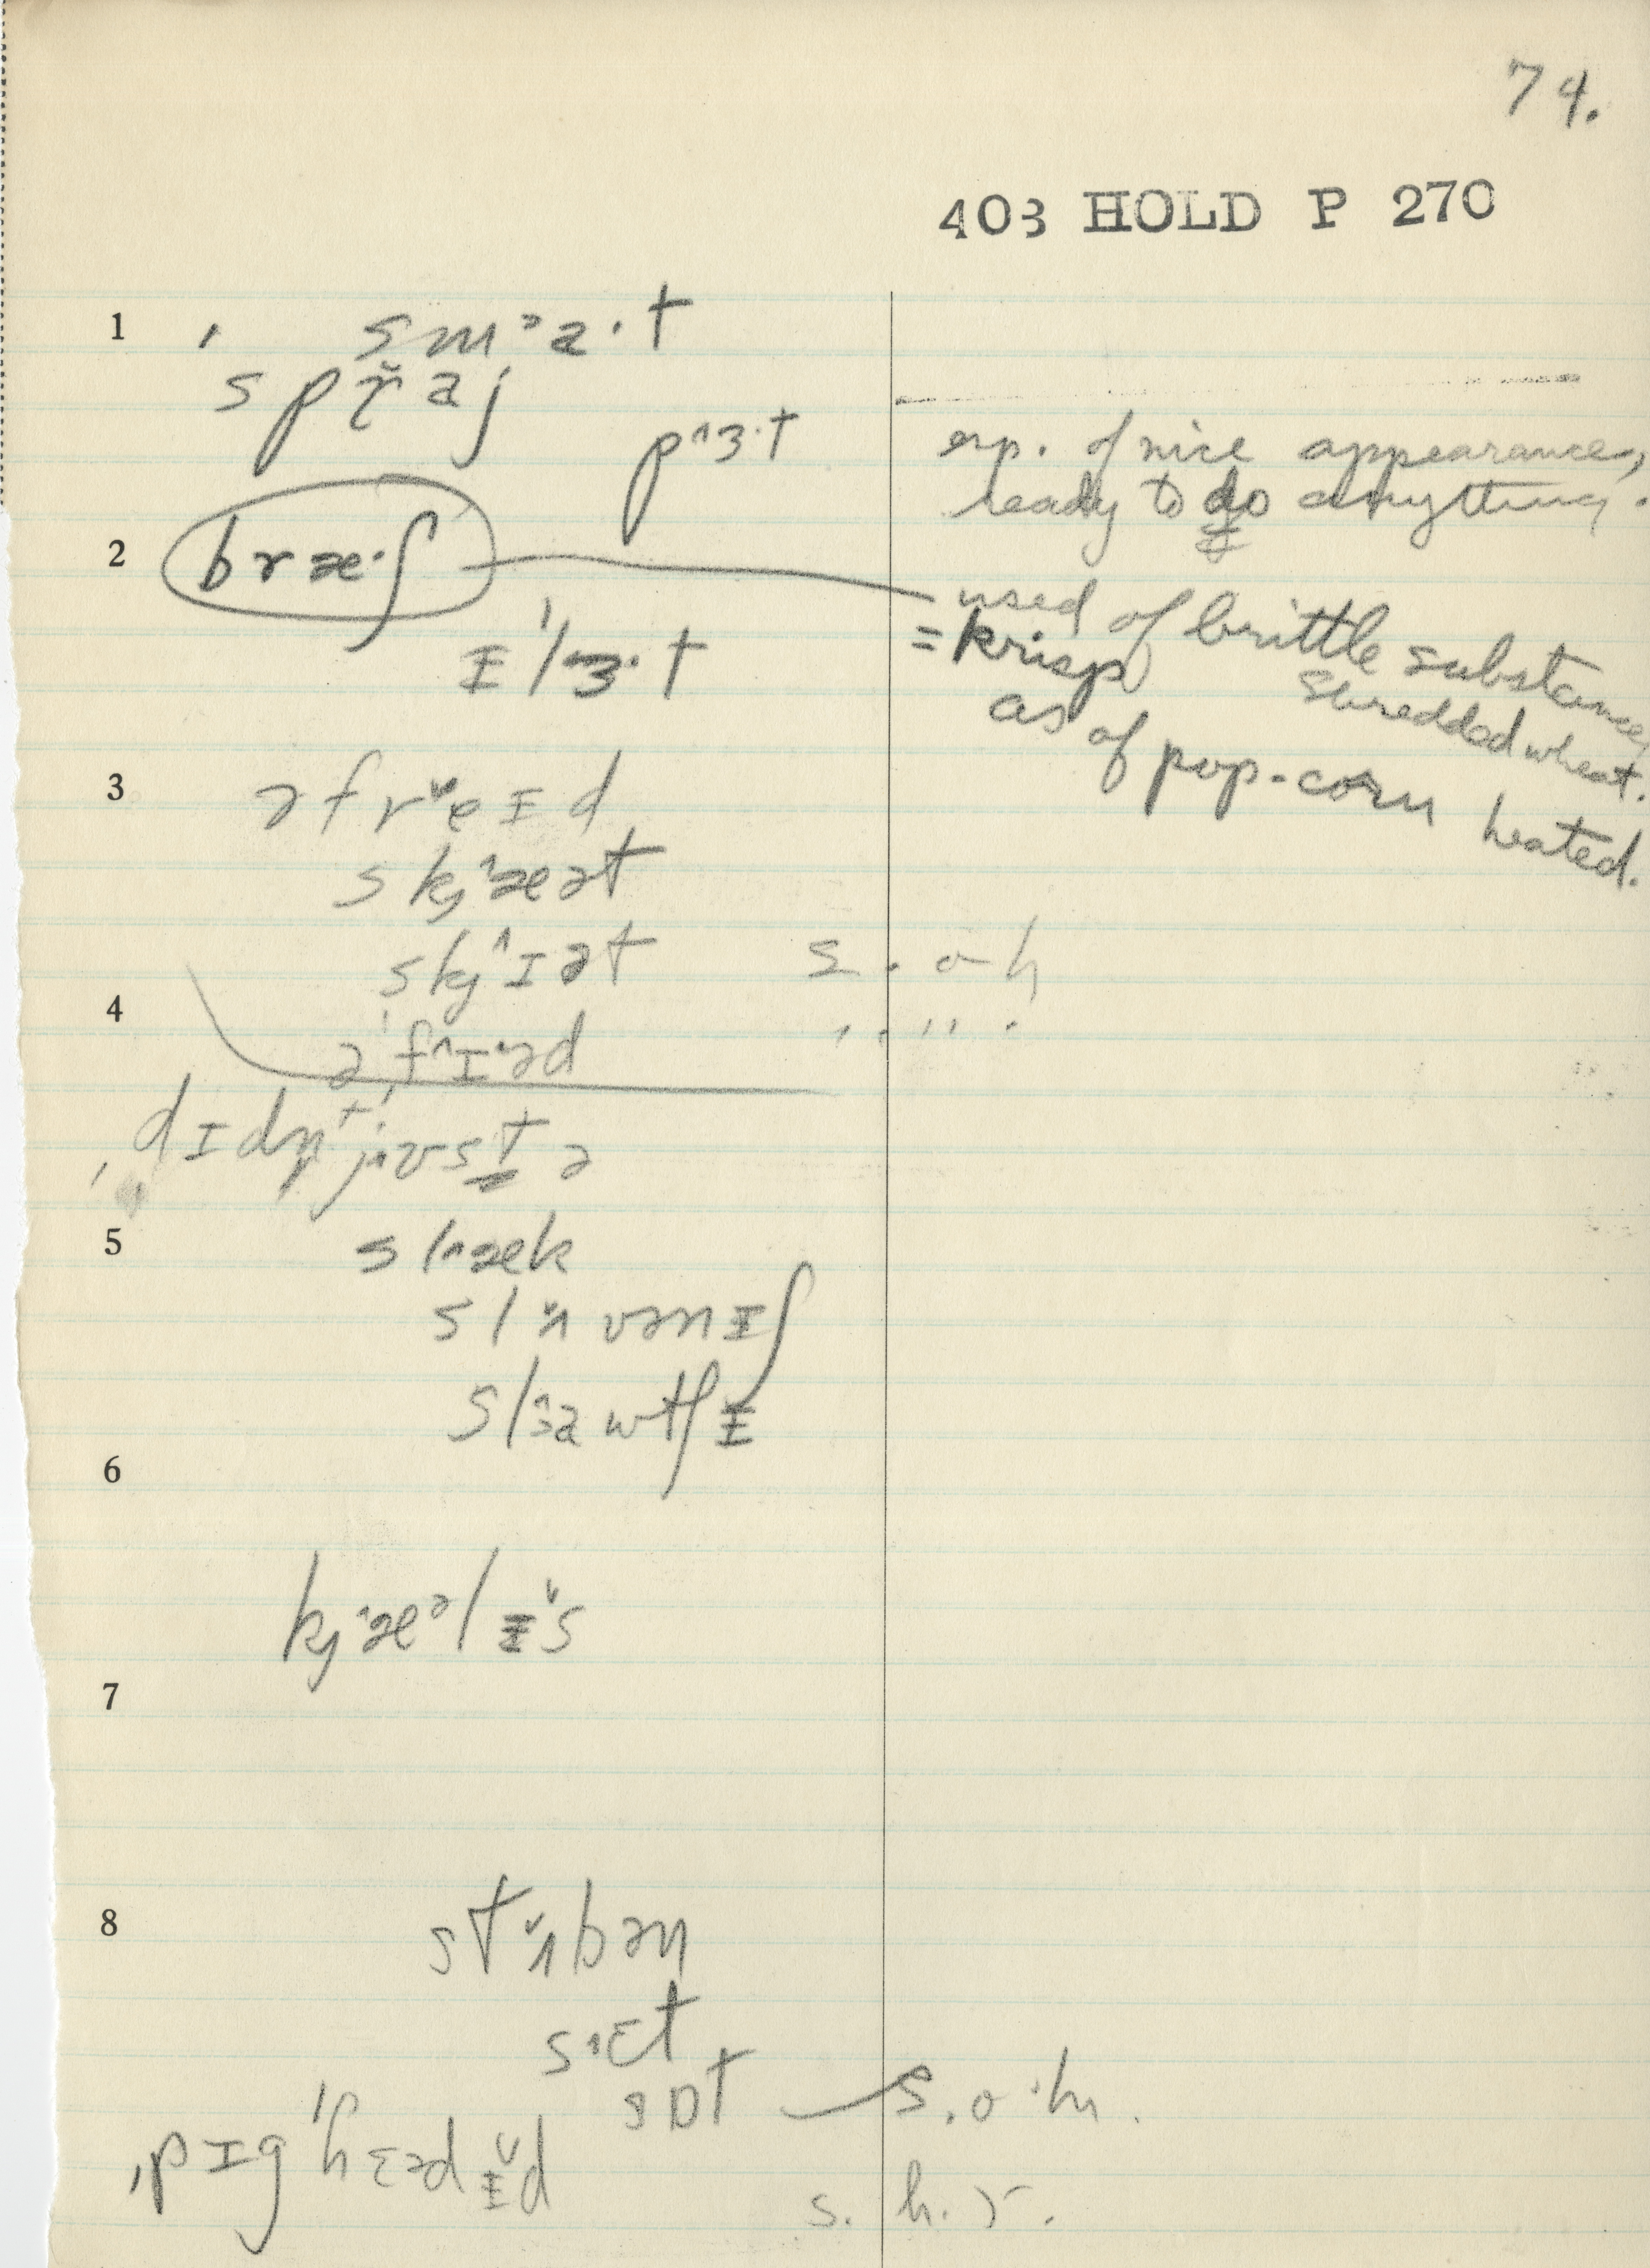 74.
403 HOLD P 270
1 , smᵊa·t
spr̆aj
p˄ɜ·t
esp. of nice appearance,
ready to do anything.
2 bræ·ʃ
used of brittle substance,
= krisp
shredded wheat.
as of pop-corn heated.
ɪˈlɜ·t
3 əfr˅eɪd
skj˄æət
skj˄ɪət s. o h
4 əˈf˄ɪ·əd
dɪdn̩t jʌst ə
5 sl˄æk
slʌ̆vənɪʃ
sl˄ɜawtʃɪ
6
kj˄æᵊlɨ̆s
7
8 stʌ̆bən
s˄ɛt
sɒt s. o. h.
ˌpɪgˈhɛədɨ̆d
s. h. r.